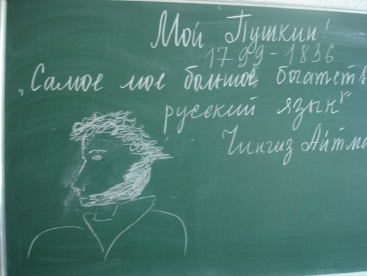 Мой Пушкин!
1799-1836
„Самое мое большое богатств
русский язык"
Чингиз Айтма